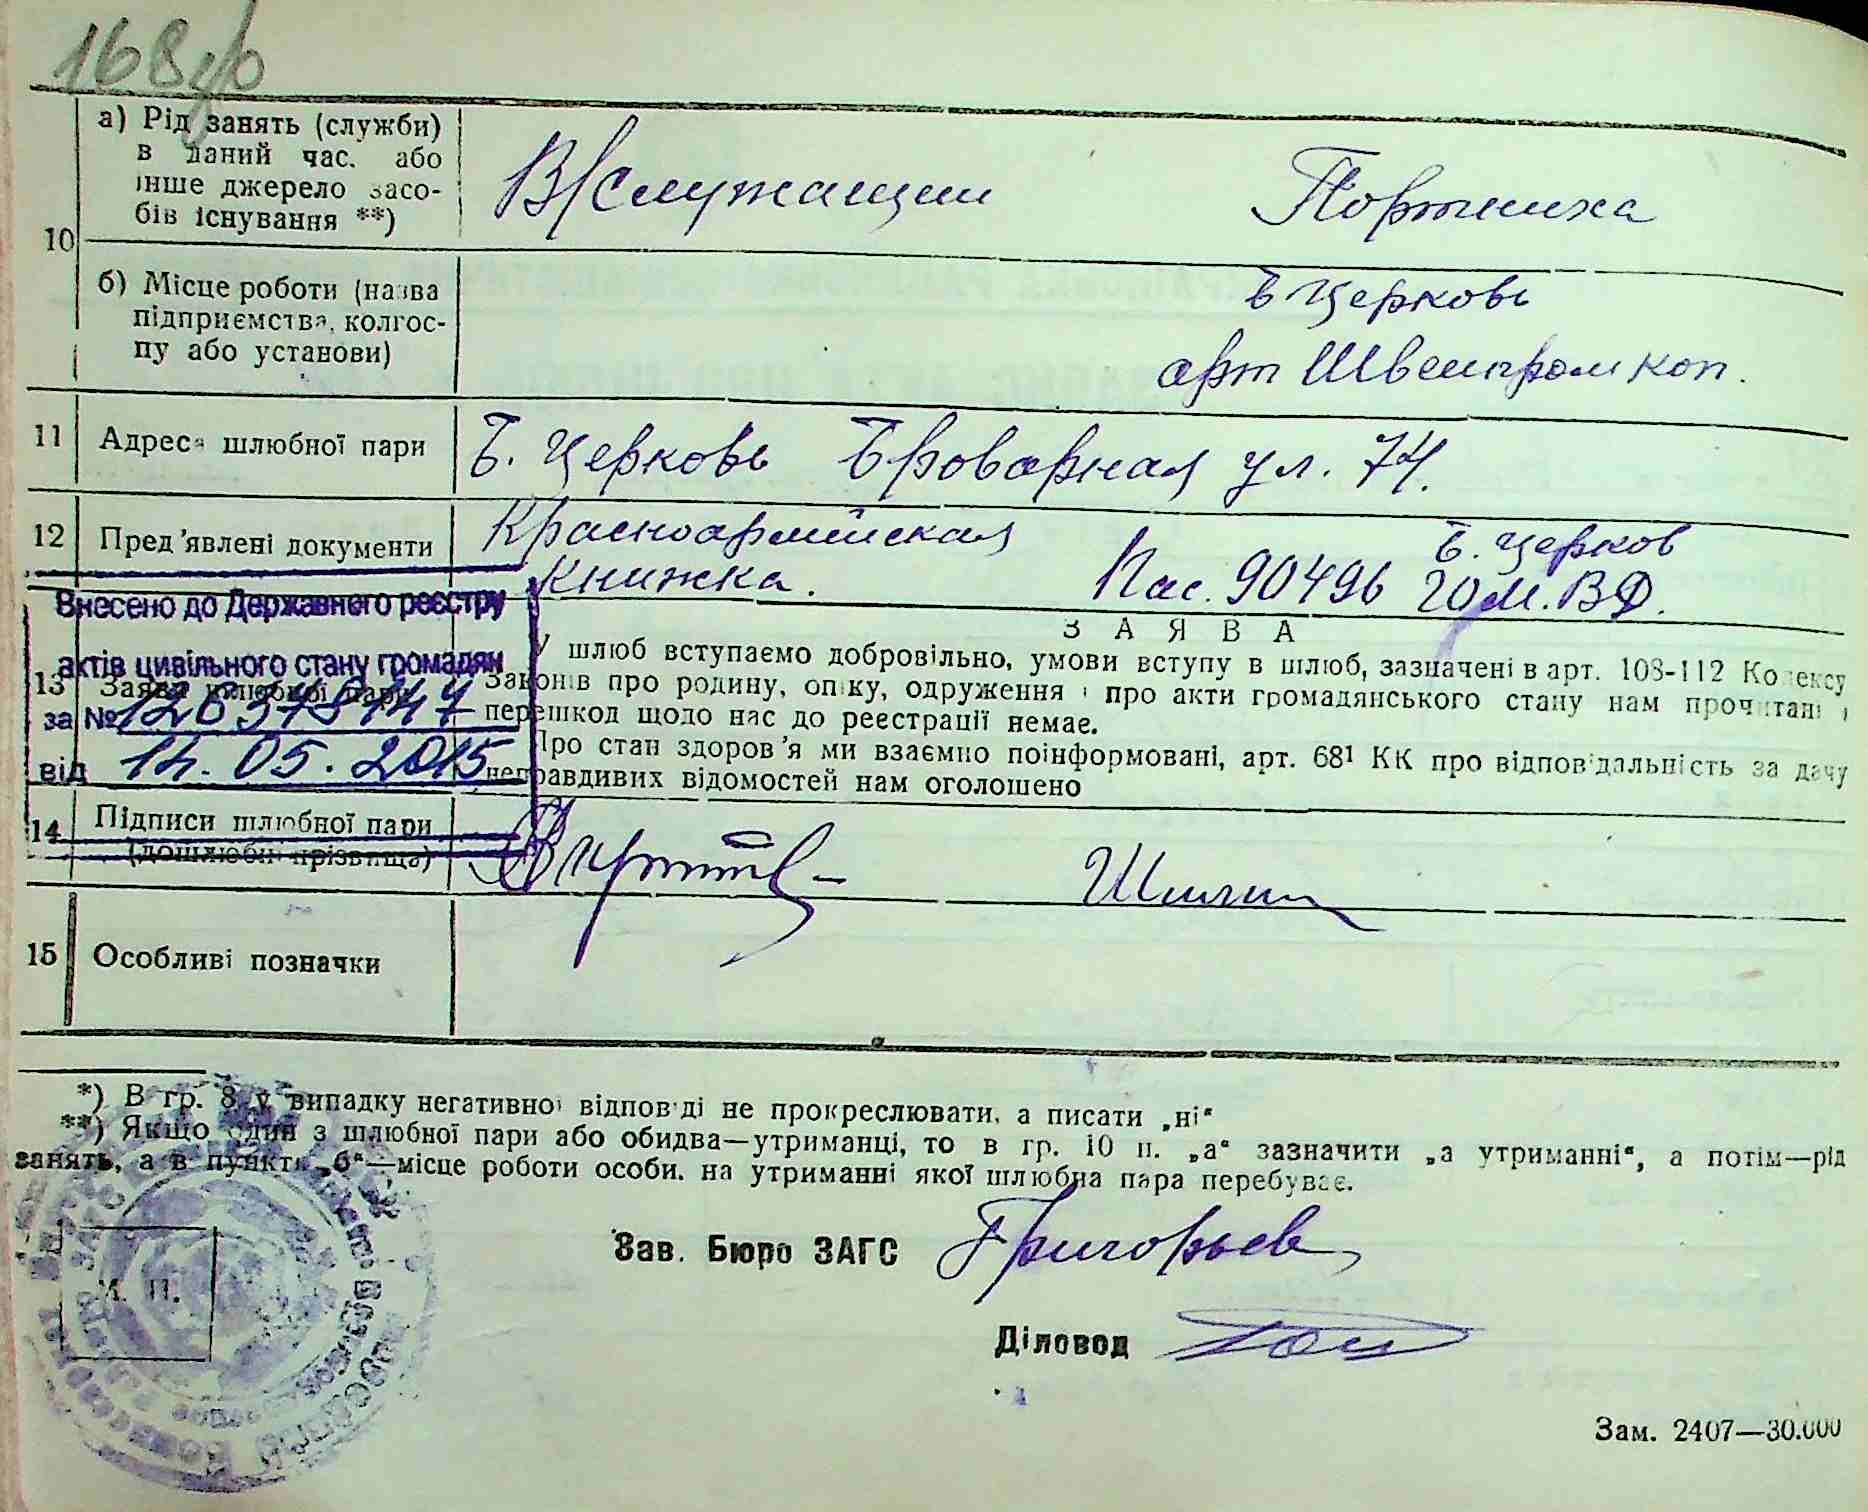 168
а) Рід занять (служби)
в даний час. або
інше джерело засо-
бів існування **)
В/служащии
Портниха
10
б) Місце роботи (назва
підприємства, колгос-
пу або установи)
Б Церковь
арт Швейпромкоп.
11 Адреса шлюбної пари
Б. Церковь Броварная ул. 74.
12 Пред'явлені документи
Красноармейская
книжка.
Пас. 90496
Б. Церков
ГОМ. ВД.
Внесено до Державного реєстру
актів цивільного стану громадян
за №
від 14. 05. 2015
13 Заява шлюбної пари
З А Я В А
У шлюб вступаємо добровільно, умови вступу в шлюб, зазначені в арт. 108-112 Кодексу
Законів про родину, опіку, одруження і про акти громадянського стану нам прочитані і
перешкод щодо нас до реестрації немає.
Про стан здоров'я ми взаємно поінформовані, арт. 68¹ КК про відповідальність за дачу
неправдивих відомостей нам оголошено
14 Підписи шлюбної пари
(дошлюбні прізвища)
15 Особливі позначки
*) В гр. 8 у випадку негативної відповіді не прокреслювати, а писати „ні“
**) Якщо один з шлюбної пари або обидва—утриманці, то в гр. 10 п. „а“ зазначити „а утриманні“, а потім—рід
занять, а в пункті „б“—місце роботи особи. на утриманні якої шлюбна пара перебуває.
Зав. Бюро ЗАГС Григорьев
М. П.
Діловод
Зам. 2407—30.000